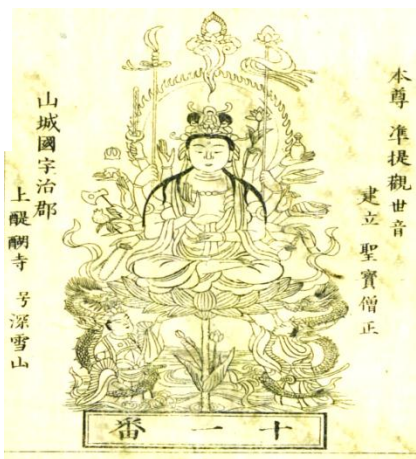 本尊 准提觀世音
建立 聖寶僧正
山城國宇治郡
上醍醐寺 号深雪山
十一番